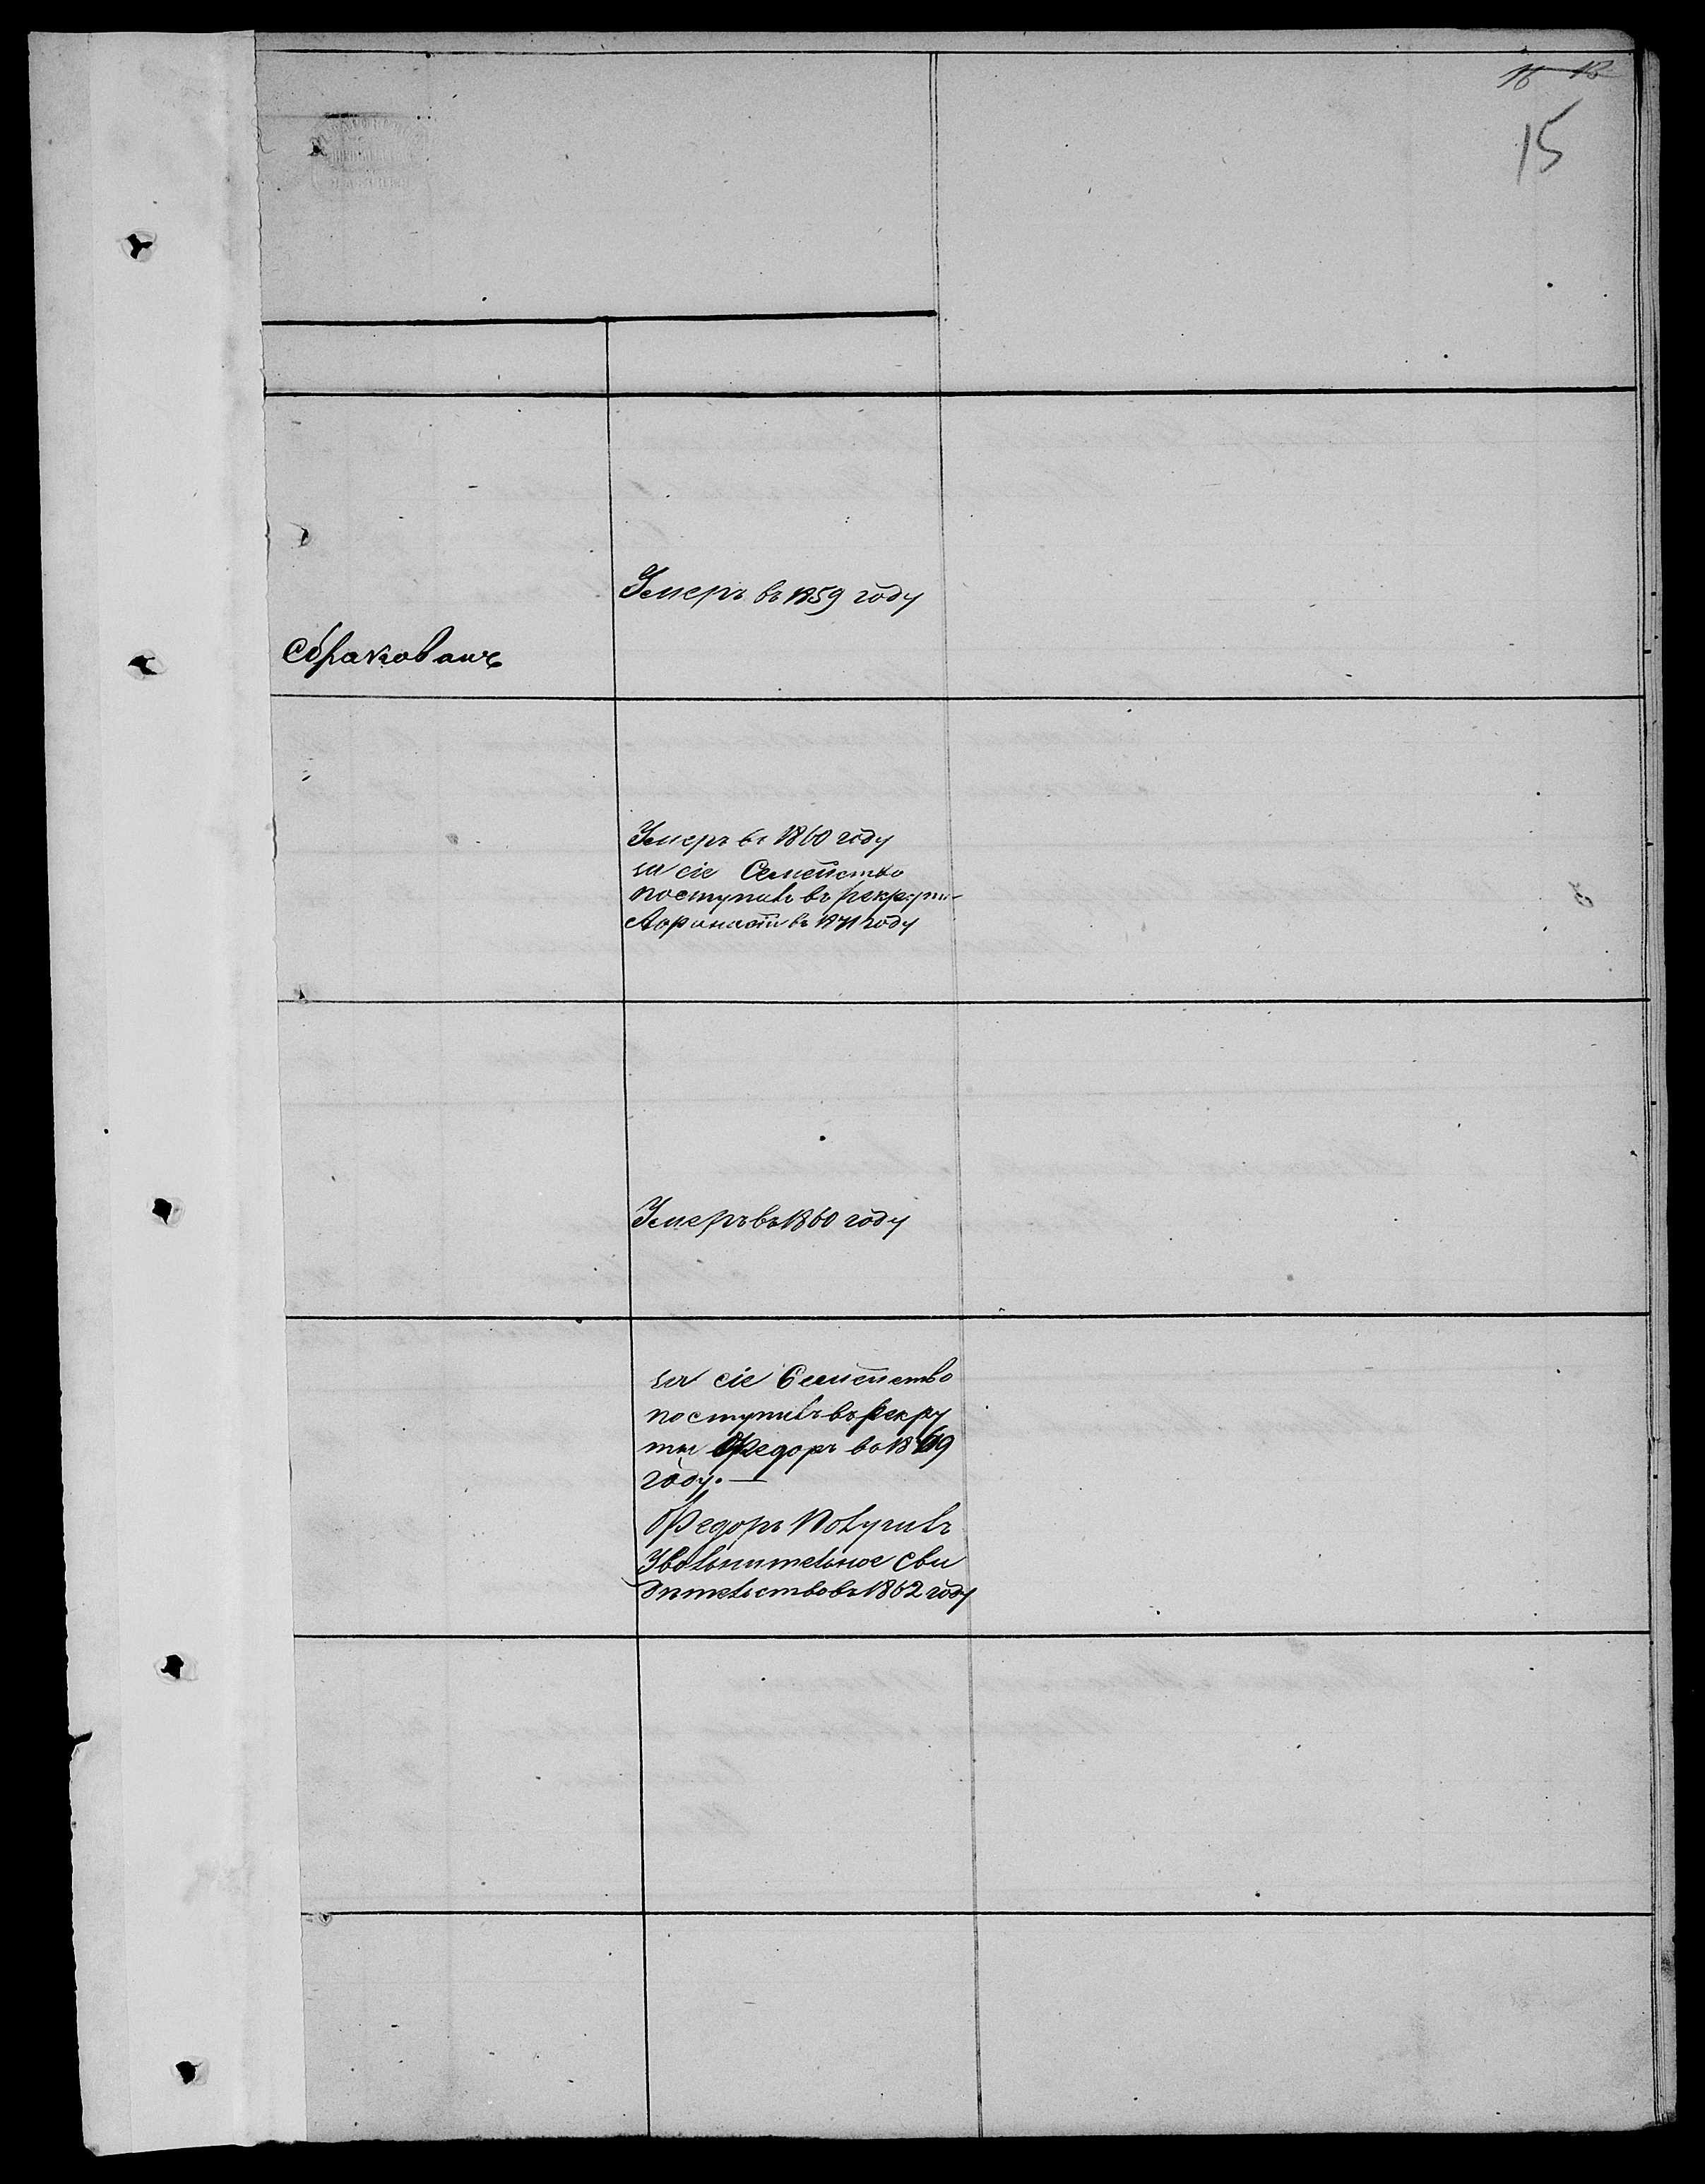 16 13
15
Умеръ въ 1859 году
обракованъ
Умеръ въ 1860 году
за сіе Семейство
поступилъ въ рекруты
въ 1871 году
Умеръ въ 1860 году
за сіе Семейство
поступилъ въ рекру
ты Федоръ въ 1869
году. —
Федоръ Получилъ
Увольнительное сви
дѣтельство въ 1862 году